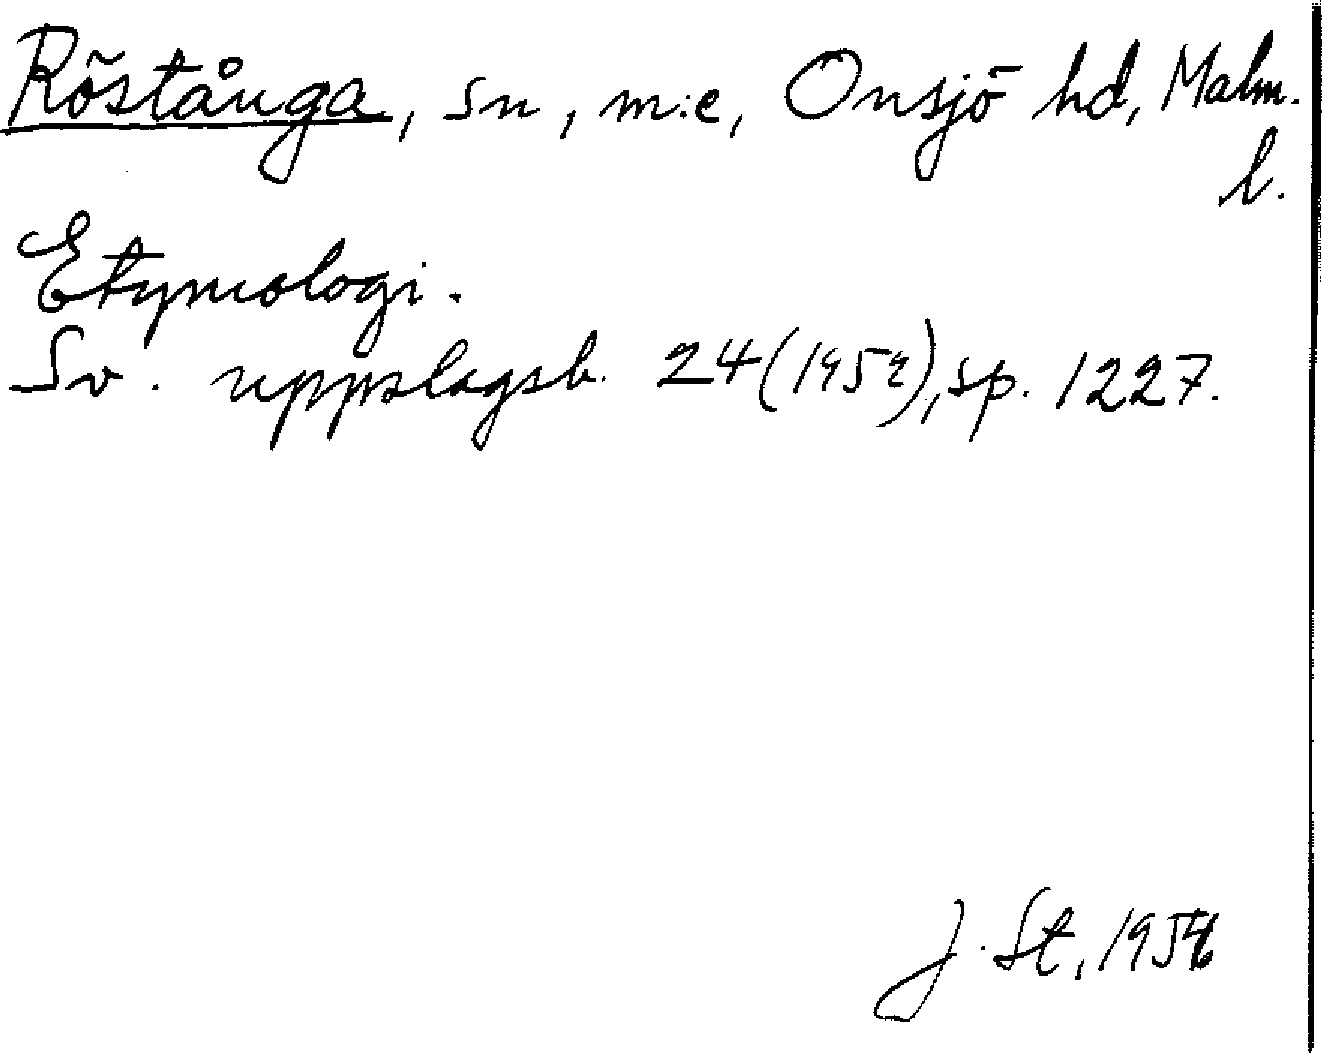 Röstånga, sn, m:e, Onsjö hd, Malm.
l.
Etymologi.
Sv. uppslagsb. 24 (1952), sp. 1227.
J. St,